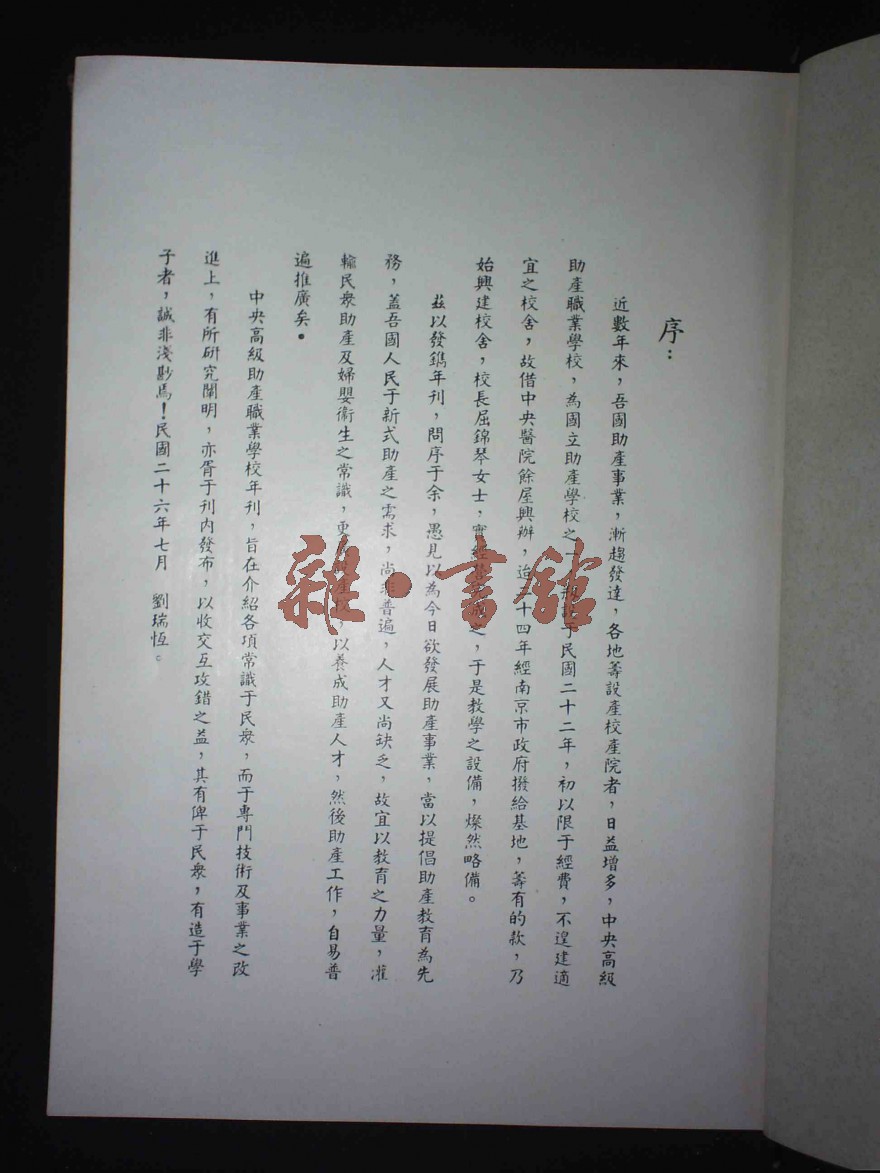 序：
近數年來，吾國助產事業，漸趨發達，各地籌設產校產院者，日益增多，中央高級
助產職業學校，為國立助產學校之一，于民國二十二年，初以限于經費，不遑建適
宜之校舍，故借中央醫院餘屋興辦，迨二十四年經南京市政府撥給基地，籌有的款，乃
始興建校舍，校長屈錦琴女士，實經之，于是教學之設備，燦然略備。
茲以發鐫年刊，問序于余，愚見以為今日欲發展助產事業，當以提倡助產教育為先
務，蓋吾國人民于新式助產之需求，尚非普遍，人才又尚缺乏，故宜以教育之力量，灌
輸民衆助產及婦嬰衛生之常識，更以養成助產人才，然後助產工作，自易普
遍推廣矣。
中央高級助產職業學校年刊，旨在介紹各項常識于民衆，而于專門技術及事業之改
進上，有所研究闡明，亦胥于刊內發布，以收交互攻錯之益，其有俾于民衆，有造于學
子者，誠非淺尠焉！民國二十六年七月 劉瑞恆。
雜·書館